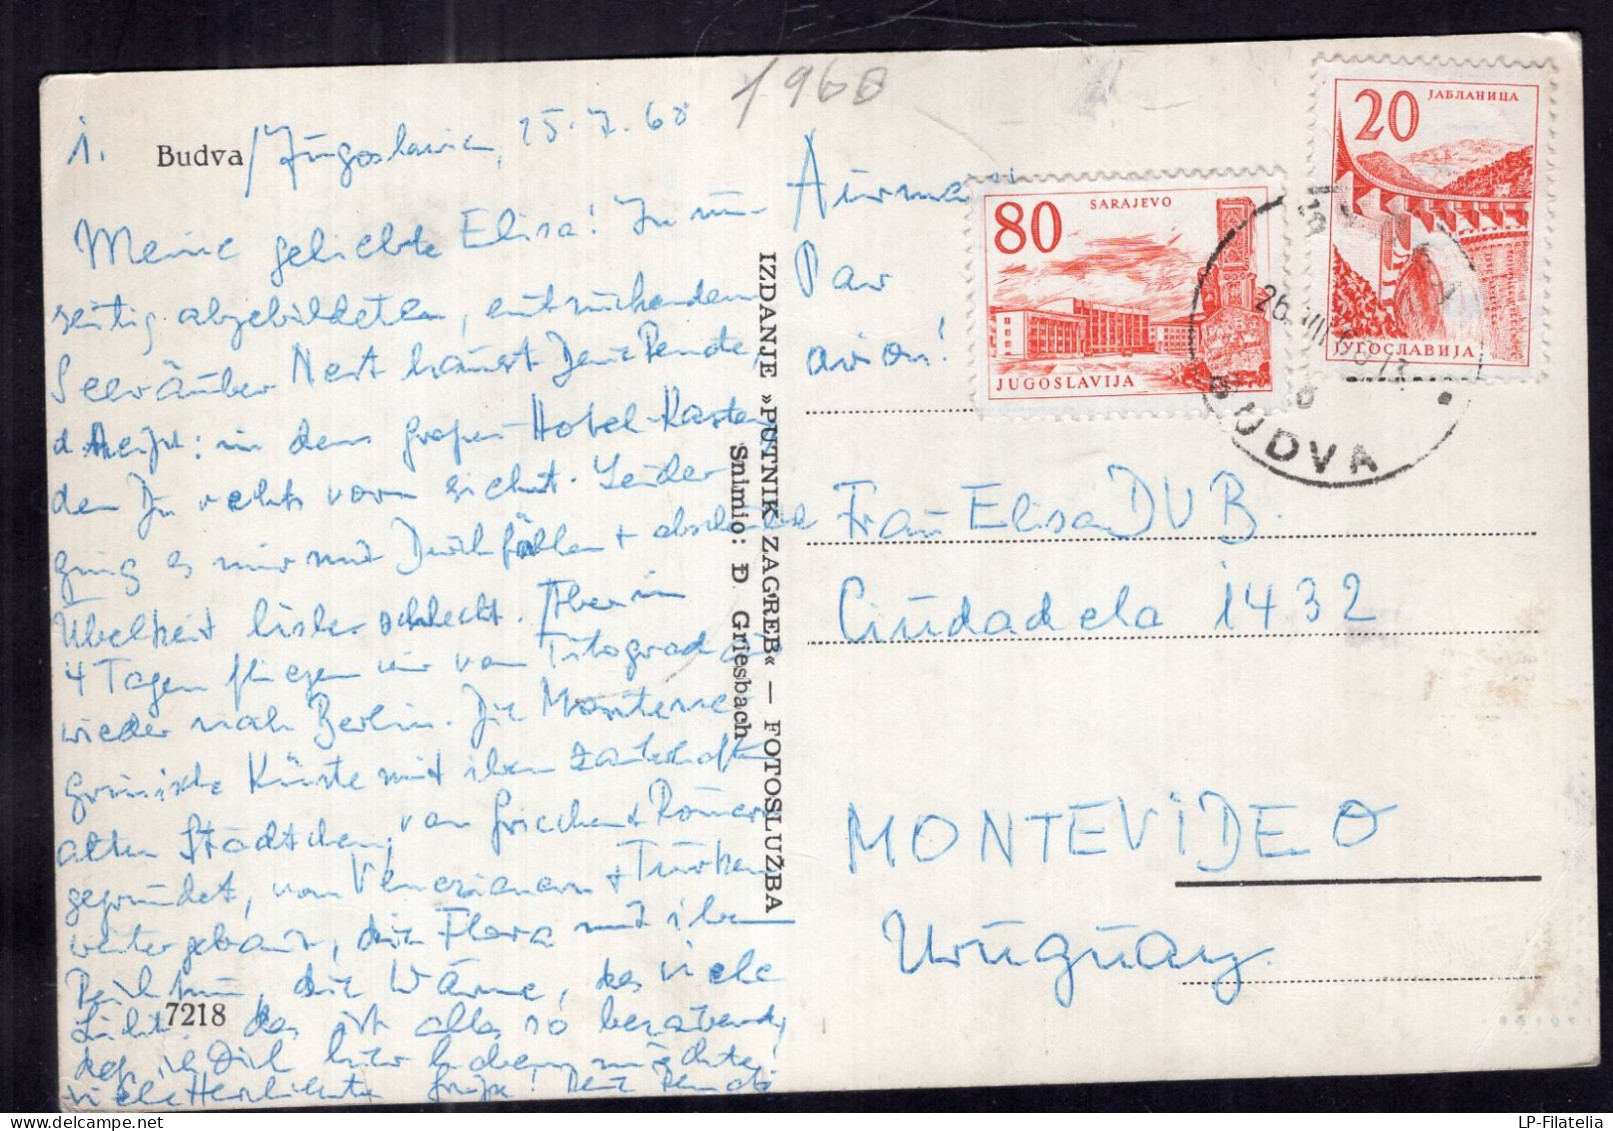 1960
1. Budva/Jugoslavia, 25.7.60
Meine geliebte Elisa! In um-
seitig abgebildeten, entzückenden
Seeräuber Nest haust Deine Renate,
d. heißt: in dem großen Hotel-Kasten
den Du rechts vorn siehst. Leider
ging es mir mit Durchfällen +
Übelkeit bisher schlecht. Aber in
4 Tagen fliegen wir von Titograd aus
wieder nach Berlin. Die Montene-
grinische Küste mit ihren zauberhaften
alten Städtchen, von Griechen & Römern
gegründet, von Venezianern + Türken
weitergebaut, die Flora mit ihrem
Reichtum, die Wärme, das viele
Licht, das ist alles so bezaubernd,
daß ich Dich hier haben möchte!
viele Herzlichste Grüße! Deine Renate
7218
IZDANJE »PUTNIK ZAGREB« — FOTOSLUŽBA
Snimio: Đ Griesbach
Airmail
Par
avion!
80
SARAJEVO
JUGOSLAVIJA
20
ЈАБЛАНИЦА
ЈУГОСЛАВИЈА
BUDVA
Frau Elisa DUB.
Ciudadela 1432
MONTEVIDEO
Uruguay.
LP-Filatelia